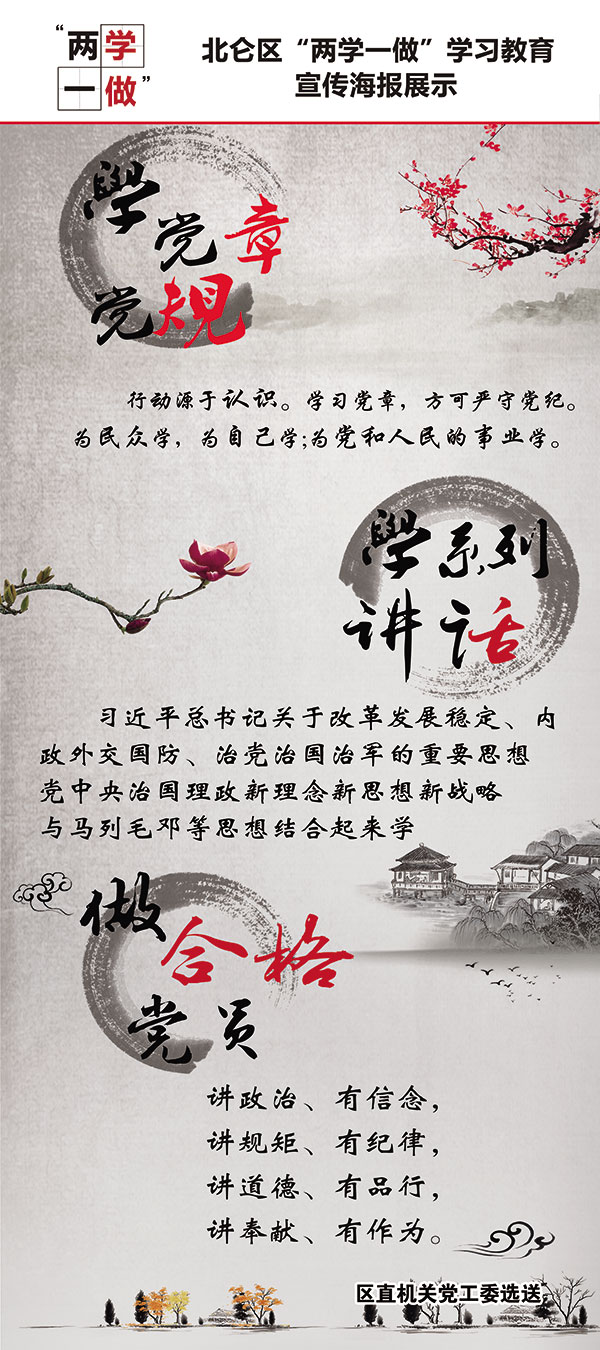 “两学
一做”
北仑区“两学一做”学习教育
宣传海报展示
學党章
党规
行动源于认识。学习党章，方可严守党纪。
为民众学，为自己学;为党和人民的事业学。
學系列
讲话
习近平总书记关于改革发展稳定、内
政外交国防、治党治国治军的重要思想
党中央治国理政新理念新思想新战略
与马列毛邓等思想结合起来学
做
合格
党员
讲政治、有信念，
讲规矩、有纪律，
讲道德、有品行，
讲奉献、有作为。
区直机关党工委选送